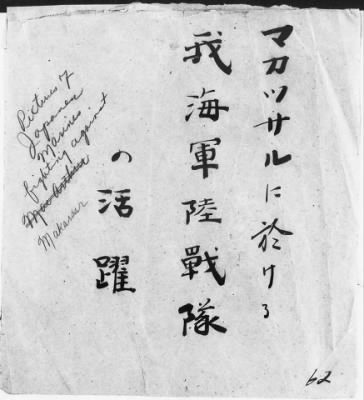 マカツサルに於ける
我海軍陸戰隊
の活躍
Pictures of
Japanese
Marines
fighting against
Makasser
62